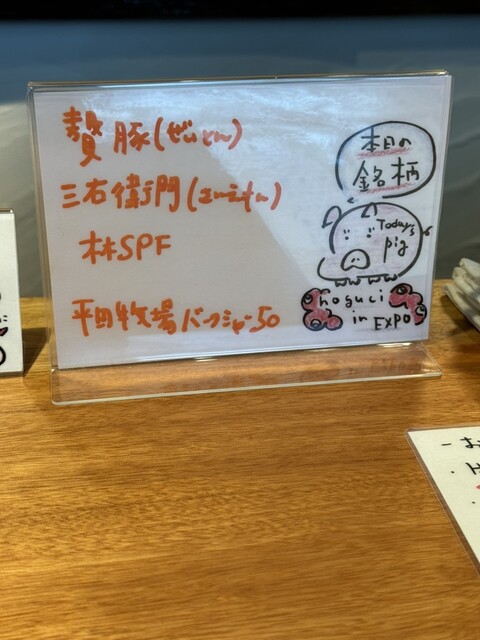 贅豚(ぜいとん)
三右衛門(さんえもん)
林SPF
平田牧場バークシャー50
本日の
銘柄
Today's
pig
hoguci
in EXPO